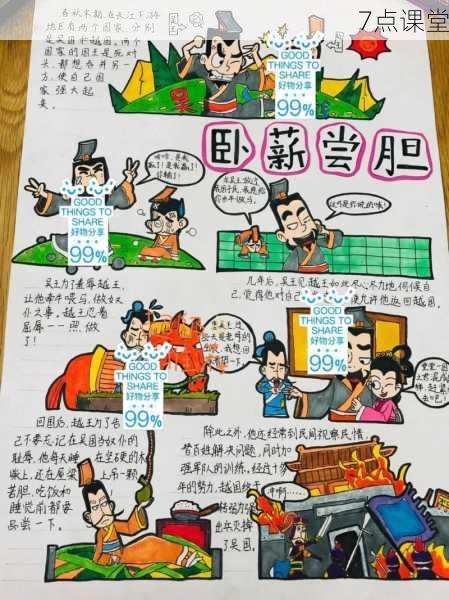 7点课堂
春秋末期,在长江下游
地区有两个国家,分别
是吴国和越国。两个
国家的国王是死对
头,都想吞并另一
方,使自己国
家强大起
来。
吴
GOOD
THINGS TO
SHARE
好物分享
99%
卧薪尝胆
GOOD
THINGS TO
SHARE
好物分享
99%
GOOD
THINGS TO
SHARE
好物分享
99%
吴王为了羞辱越王,
让他牵牛喂马,做奴
仆之事。越王忍着
屈辱一一照做
了!
几年后,吴王见越王如此尽心尽力地伺候自
己,觉得他对自己
便允许他返回越国。
GOOD
THINGS TO
SHARE
好物分享
99%
GOOD
THINGS TO
SHARE
好物分享
99%
回国后,越王为了告
己不要忘记在吴国当奴仆的
耻辱,他每天睡
在坚硬的木
柴上,还在屋梁
上吊一颗
老胆,吃饭和
睡觉前都要
品尝一下。
除此之外,他还经常到民间视察民情,
替百姓解决问题,同时加
强军队的训练,经过十
年的努力,越国终于
转弱为强
出兵灭掉
了吴国。
冲啊……